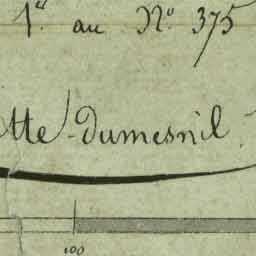 1er au No 375
tte-dumesnil.
100